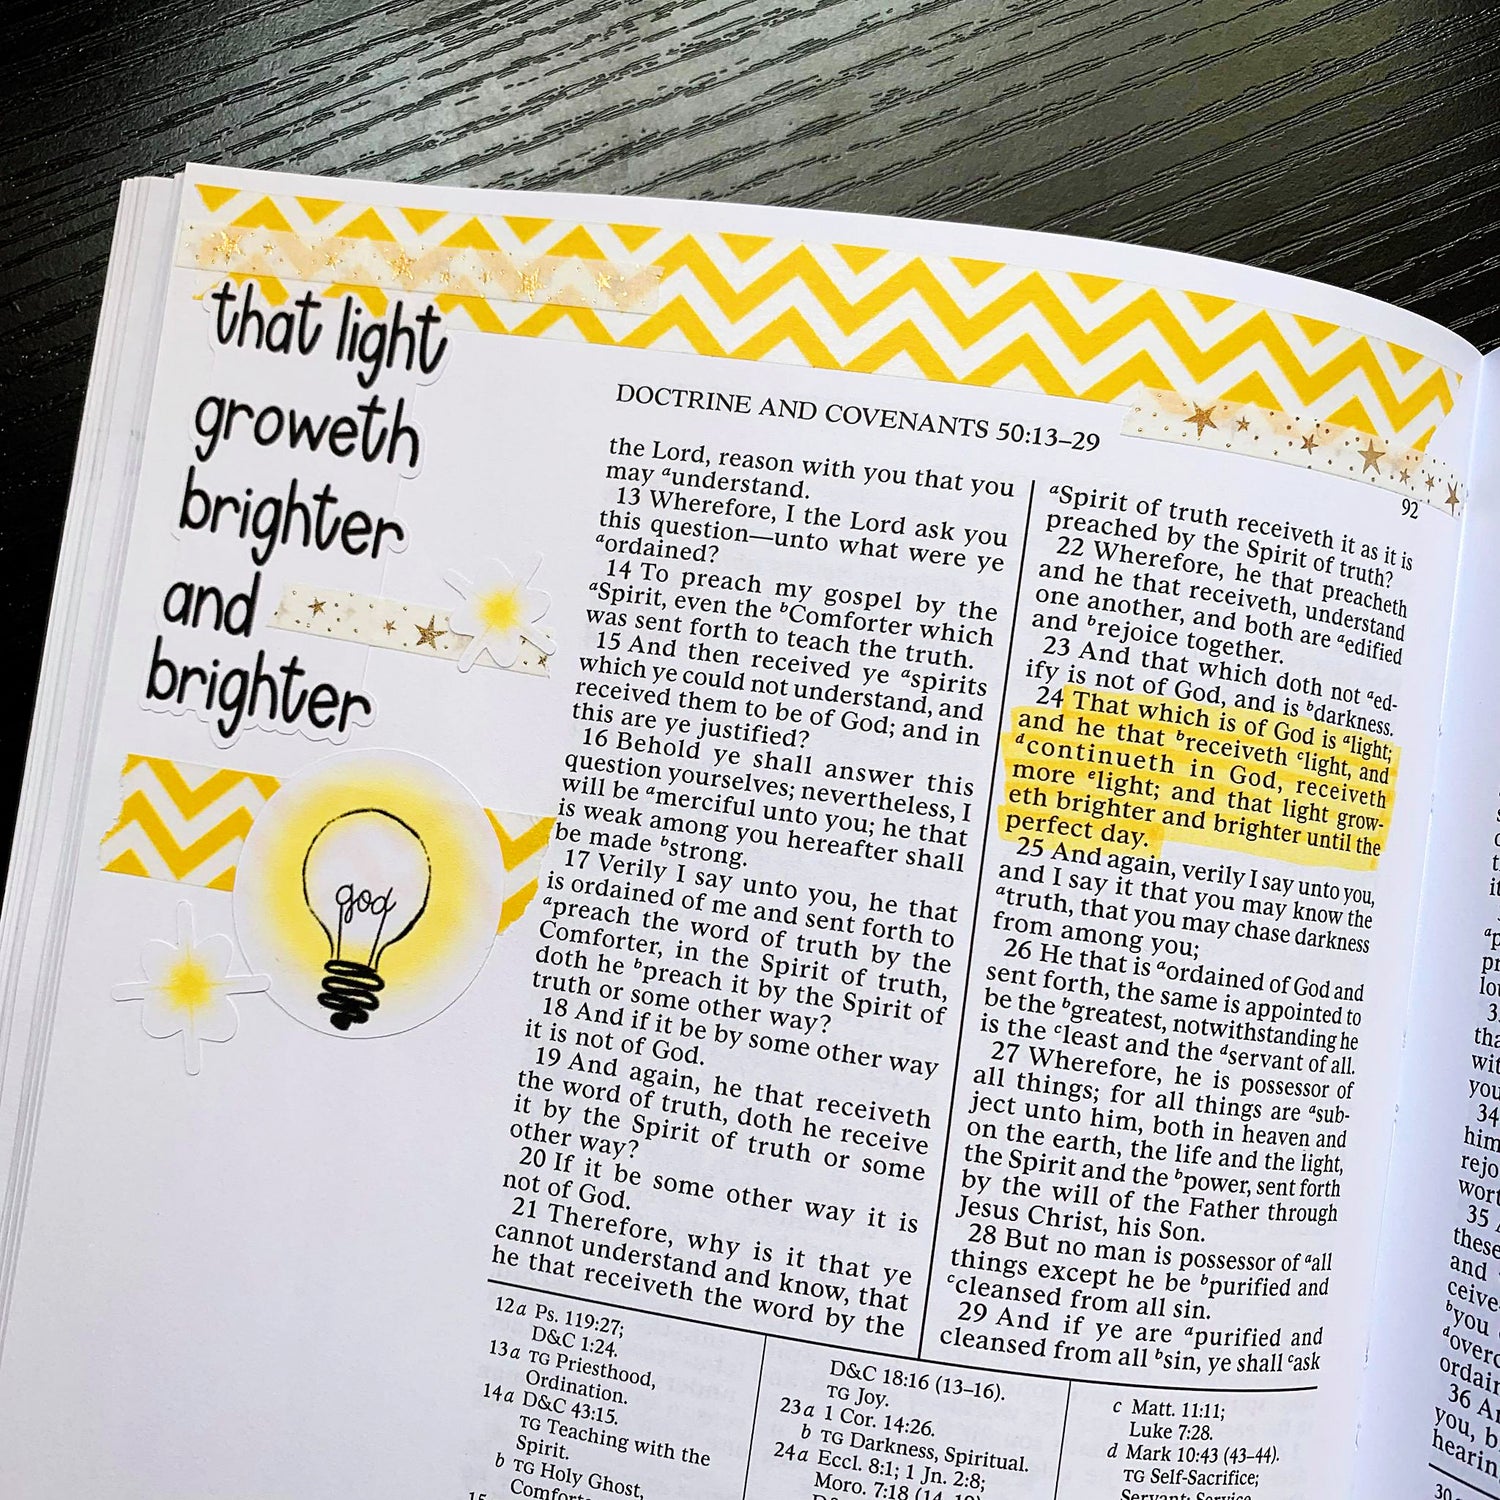 that light
groweth
brighter
and
brighter
god
DOCTRINE AND COVENANTS 50:13–29
92
the Lord, reason with you that you
may ᵃunderstand.
13 Wherefore, I the Lord ask you
this question—unto what were ye
ᵃordained?
14 To preach my gospel by the
ᵃSpirit, even the ᵇComforter which
was sent forth to teach the truth.
15 And then received ye ᵃspirits
which ye could not understand, and
received them to be of God; and in
this are ye justified?
16 Behold ye shall answer this
question yourselves; nevertheless, I
will be ᵃmerciful unto you; he that
is weak among you hereafter shall
be made ᵇstrong.
17 Verily I say unto you, he that
is ordained of me and sent forth to
ᵃpreach the word of truth by the
Comforter, in the Spirit of truth,
doth he ᵇpreach it by the Spirit of
truth or some other way?
18 And if it be by some other way
it is not of God.
19 And again, he that receiveth
the word of truth, doth he receive
it by the Spirit of truth or some
other way?
20 If it be some other way it is
not of God.
21 Therefore, why is it that ye
cannot understand and know, that
he that receiveth the word by the
ᵃSpirit of truth receiveth it as it is
preached by the Spirit of truth?
22 Wherefore, he that preacheth
and he that receiveth, understand
one another, and both are ᵃedified
and ᵇrejoice together.
23 And that which doth not ᵃed-
ify is not of God, and is ᵇdarkness.
24 That which is of God is ᵃlight;
and he that ᵇreceiveth ᶜlight, and
ᵈcontinueth in God, receiveth
more ᵉlight; and that light grow-
eth brighter and brighter until the
perfect day.
25 And again, verily I say unto you,
and I say it that you may know the
ᵃtruth, that you may chase darkness
from among you;
26 He that is ᵃordained of God and
sent forth, the same is appointed to
be the ᵇgreatest, notwithstanding he
is the ᶜleast and the ᵈservant of all.
27 Wherefore, he is possessor of
all things; for all things are ᵃsub-
ject unto him, both in heaven and
on the earth, the life and the light,
the Spirit and the ᵇpower, sent forth
by the will of the Father through
Jesus Christ, his Son.
28 But no man is possessor of ᵃall
things except he be ᵇpurified and
ᶜcleansed from all sin.
29 And if ye are ᵃpurified and
cleansed from all ᵇsin, ye shall ᶜask
12a Ps. 119:27;
D&C 1:24.
13a TG Priesthood,
Ordination.
14a D&C 43:15.
TG Teaching with the
Spirit.
b TG Holy Ghost,
D&C 18:16 (13–16).
TG Joy.
23a 1 Cor. 14:26.
b TG Darkness, Spiritual.
24a Eccl. 8:1; 1 Jn. 2:8;
c Matt. 11:11;
Luke 7:28.
d Mark 10:43 (43–44).
TG Self-Sacrifice;
34
35
these
and
36
you, b